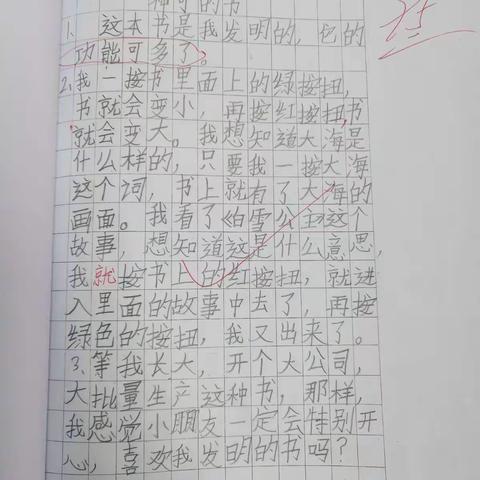 种可的书
1、这本书是我发明的，它的
功能可多了。
2、我一按书里面上的绿按扭，
书就会变小，再按红按扭，书
就会变大。我想知道大海是
什么样的，只要我一按大海
这个词，书上就有了大海的
画面。我看了《白雪公主》这个
故事，想知道这是什么意思，
我就按书上的红按扭，就进
入里面的故事中去了，再按
绿色的按扭，我又出来了。
3、等我长大，开个大公司，
大批量生产这种书，那样，
我感觉小朋友一定会特别开
心，喜欢我发明的书吗？